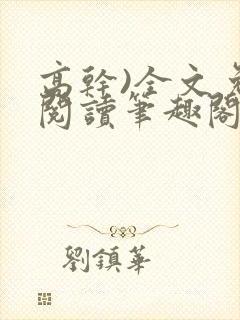 高幹)全文免
閱讀筆趣閣
劉鎮華